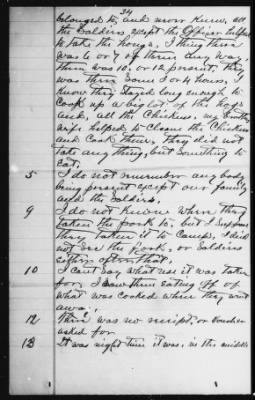 34
belonged to, and never knew, all
the Soldiers except the Officer helped
to take the hogs, I think there
was 6 or 7 of them any way.
there was 10, or 12 present, they
was there some 3 or 4 hours, I
know they stayed long enough to
Cook up a big lot of the hogs
and, all the Chickens, my
wife helped to cleane the Chickens
and Cook them, they did not
take any thing, but something to
eat,
5 I do not remember any body
being present except our family
and the Soldiers,
9 I do not know where they
taken the pork to, but I Suppose
they taken it to Camp, I did
not see the pork, or Soldiers
either after that,
10 I cant say what use it was taken
for, I saw them eating of
what was cooked when they went
away,
12 there was no receipt, or voucher
asked for
13 It was night time it was, in the middle